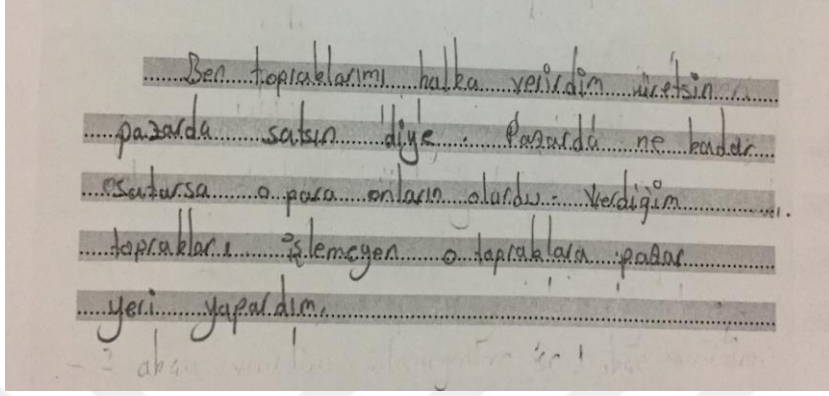 Ben topraklarımı halka verirdim üretsin
pazarda satsın diye. Pazarda ne kadar
satarsa o para onların olurdu. Verdiğim
toprakları işlemeyen o topraklara pazar
yeri yapardım.